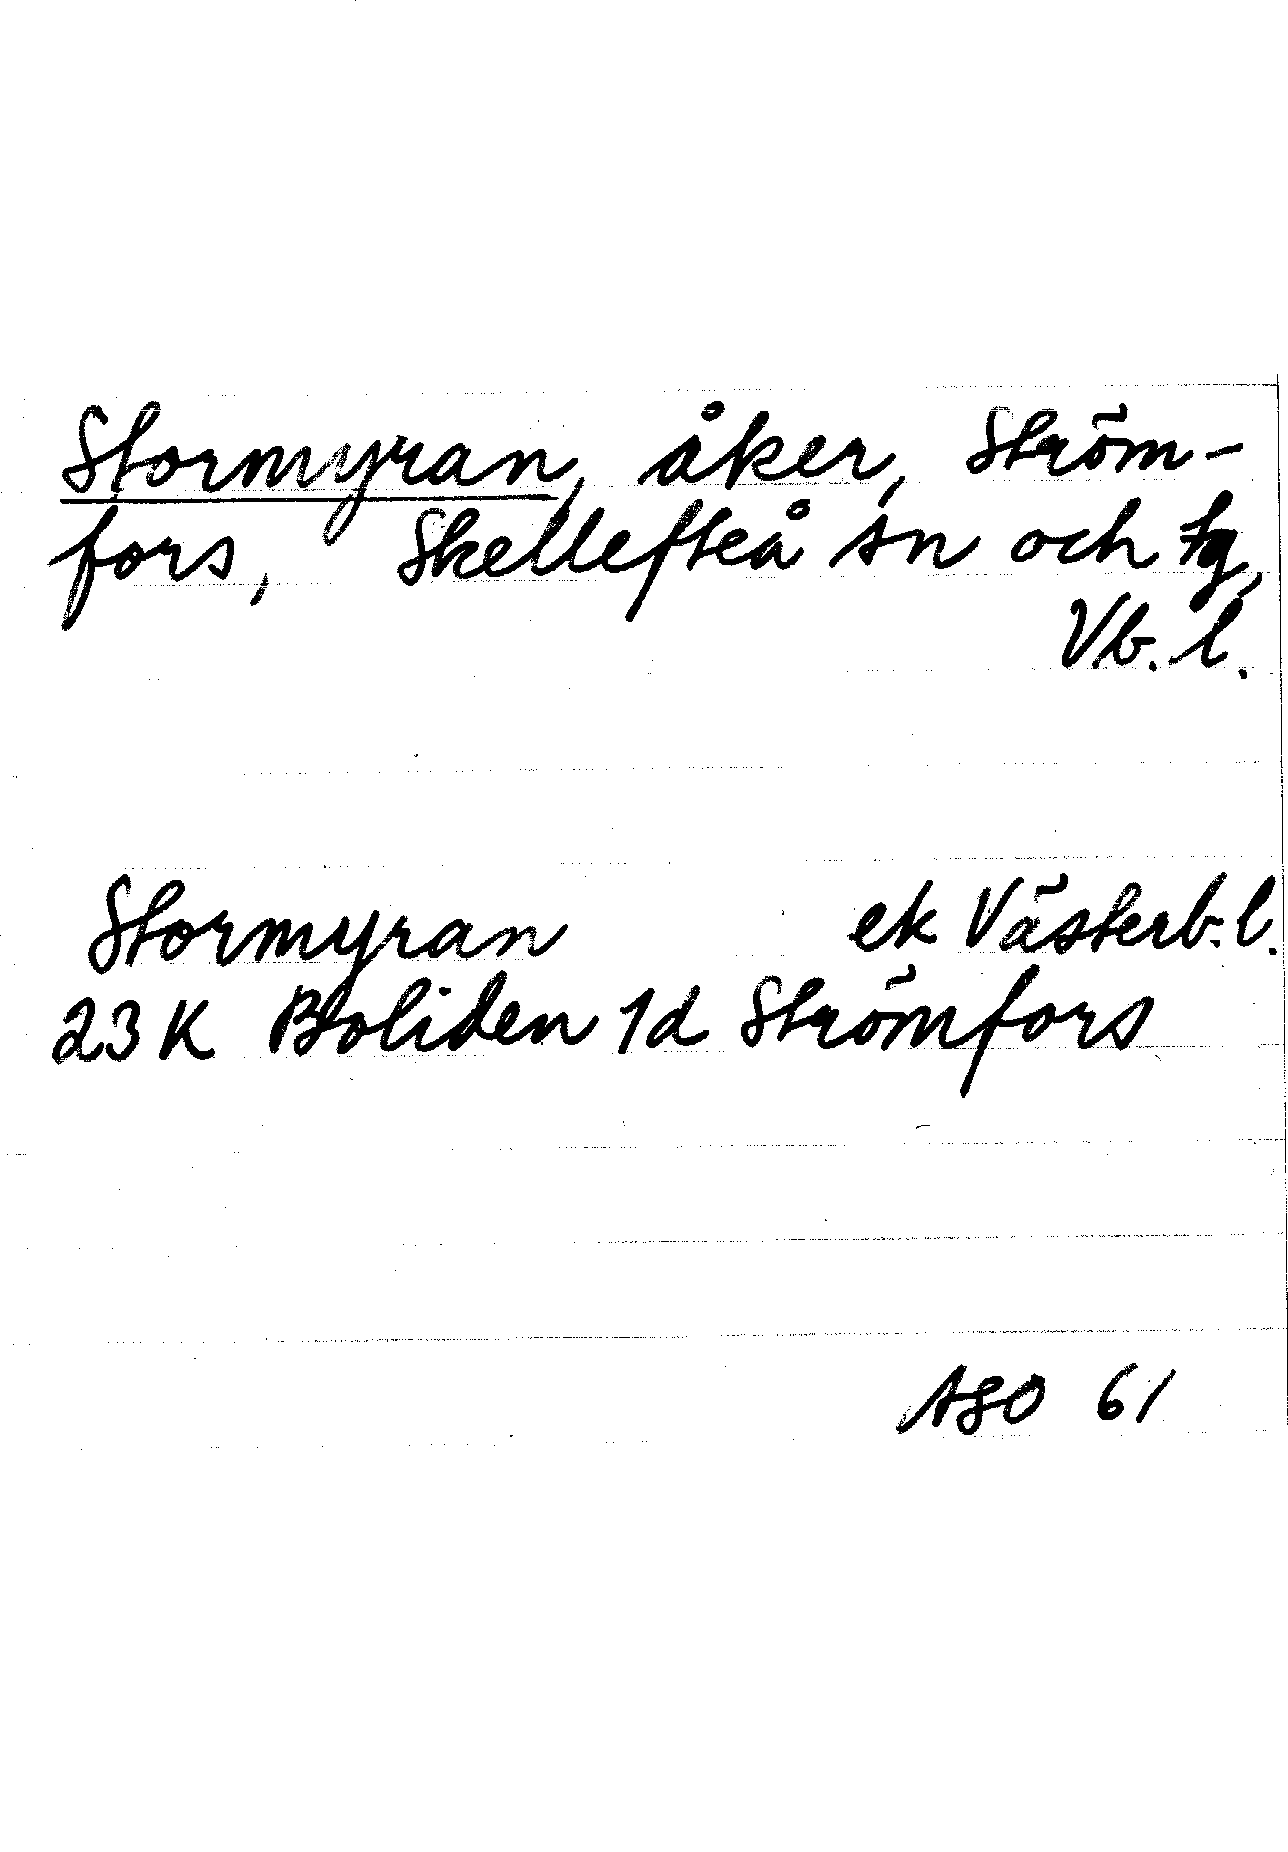 Stormyran, åker, Ström-
fors, Skellefteå sn och tg,
Vb. l.
Stormyran ek Västerb. l.
23 K Boliden 1d Strömfors
ASO 61